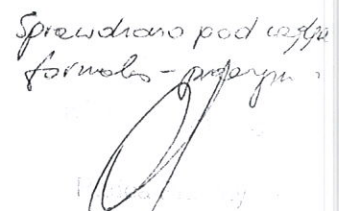 Sprawdzono pod wzglę
formalno-prawnym